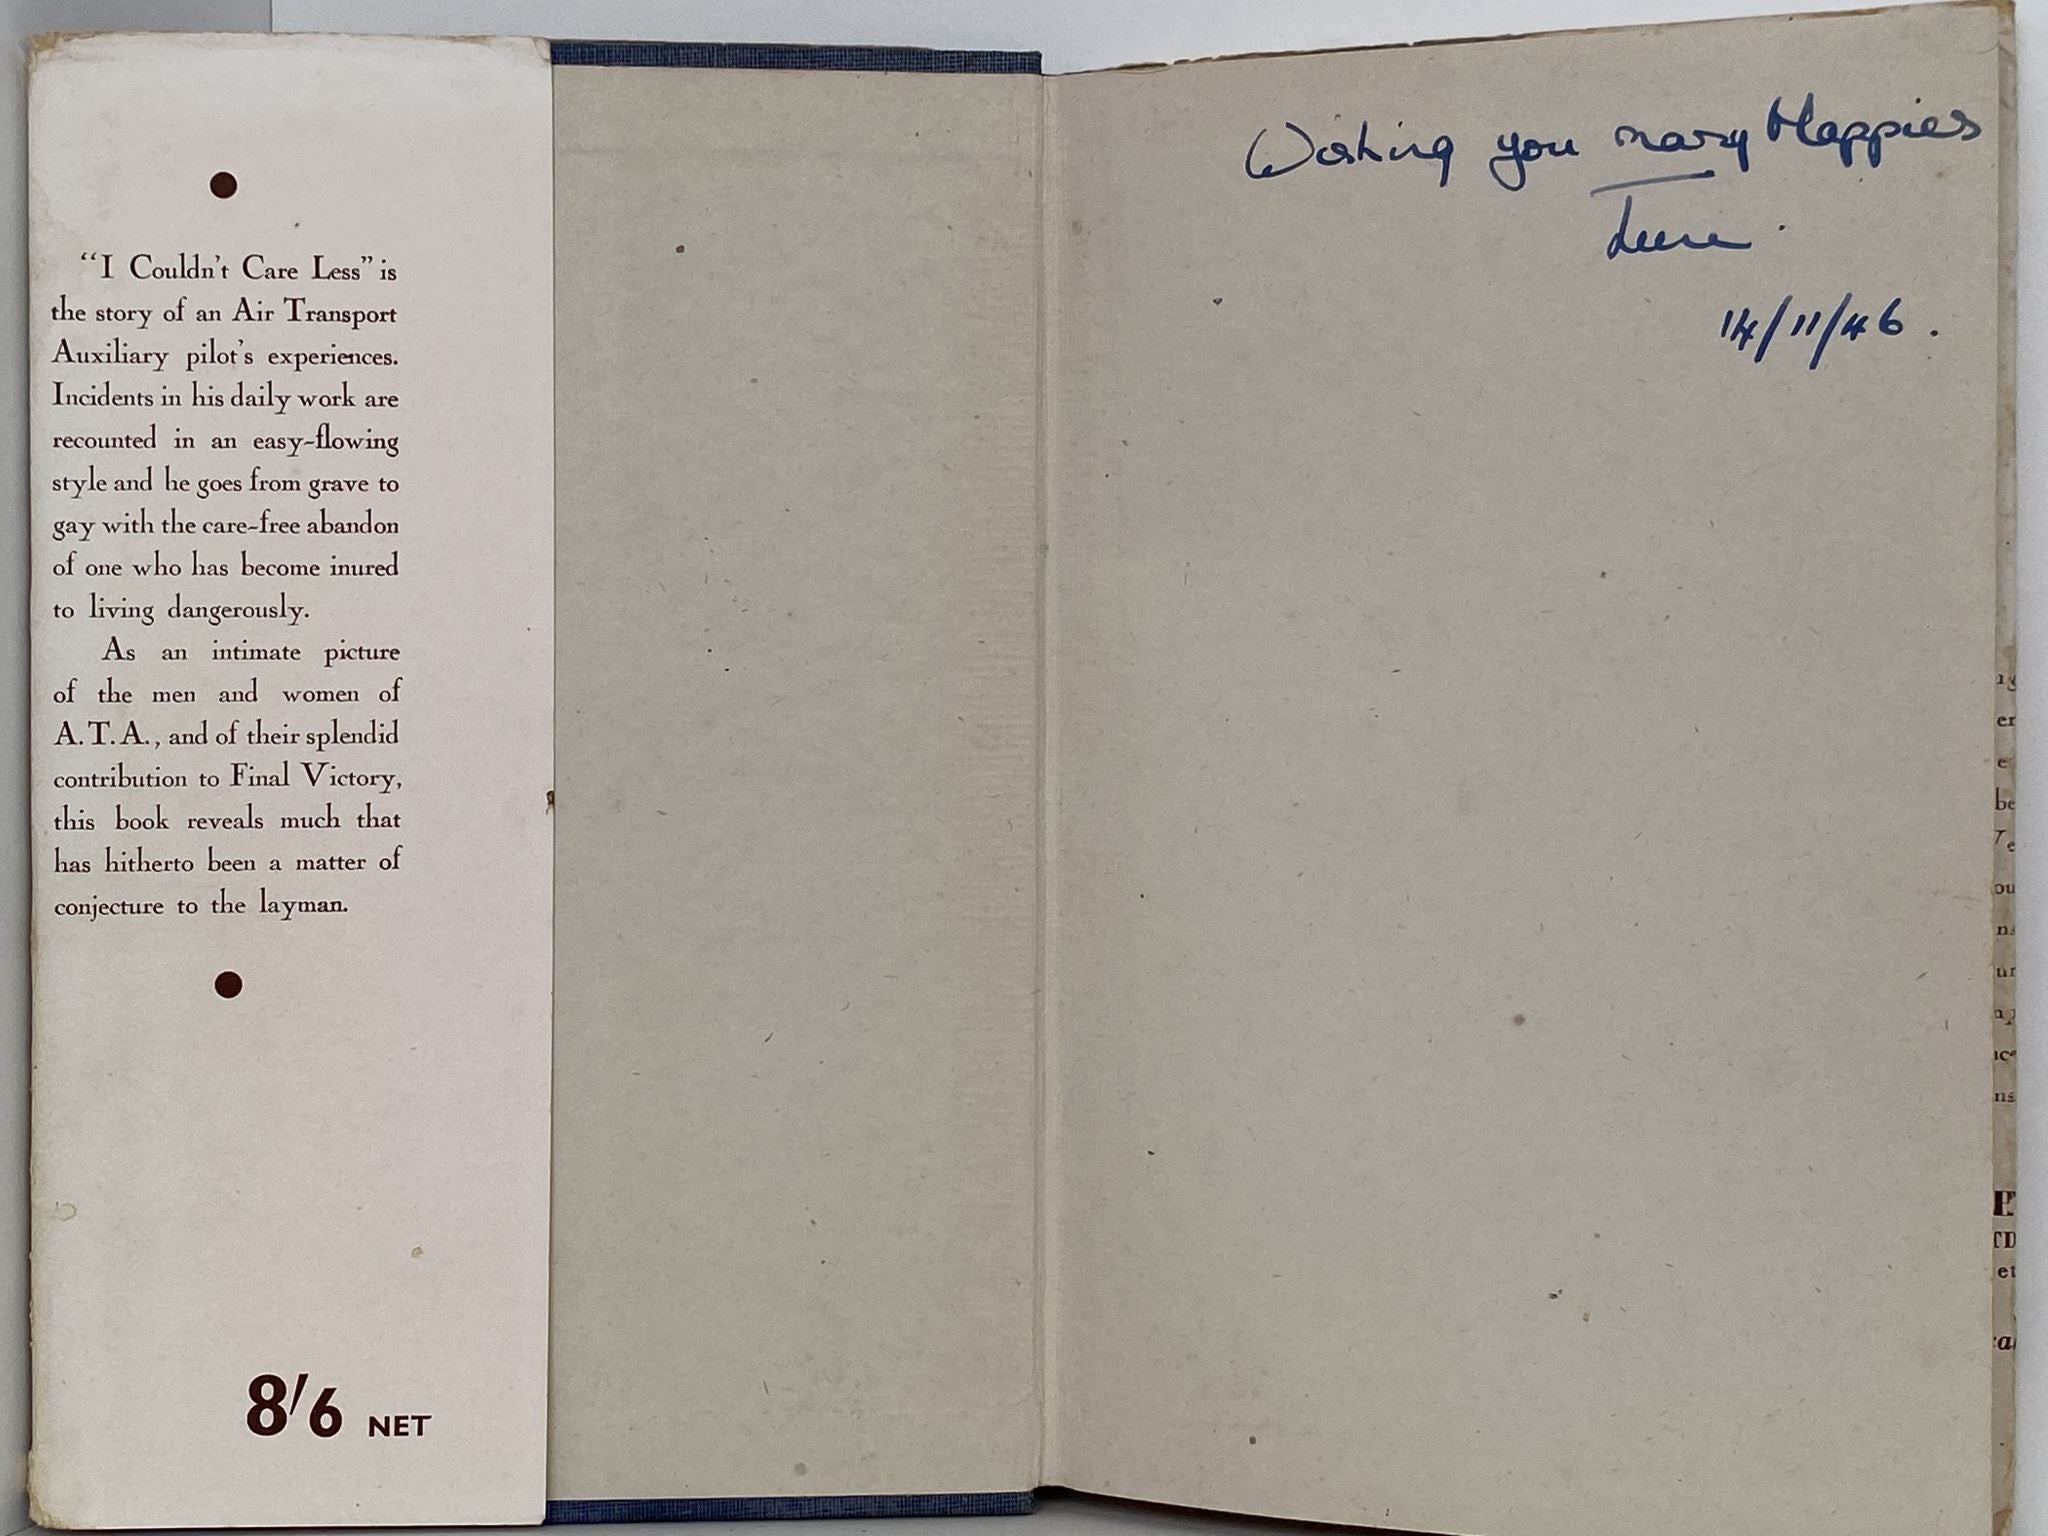 “I Couldn't Care Less” is
the story of an Air Transport
Auxiliary pilot's experiences.
Incidents in his daily work are
recounted in an easy-flowing
style and he goes from grave to
gay with the care-free abandon
of one who has become inured
to living dangerously.
As an intimate picture
of the men and women of
A.T.A., and of their splendid
contribution to Final Victory,
this book reveals much that
has hitherto been a matter of
conjecture to the layman.
8/6 NET
Wishing you many Happies
14/11/46.